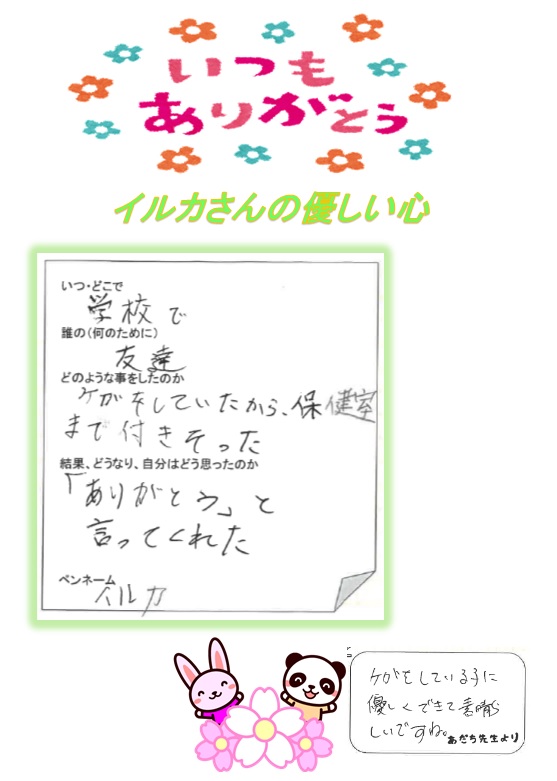 いつも
ありがとう
イルカさんの優しい心
いつ・どこで
学校で
誰の（何のために）
友達
どのような事をしたのか
ケガをしていたから、保健室
まで付きそった
結果、どうなり、自分はどう思ったのか
「ありがとう」と
言ってくれた
ペンネーム
イルカ
ケガをしている子に
優しくできて素晴ら
しいですね。
あだち先生より